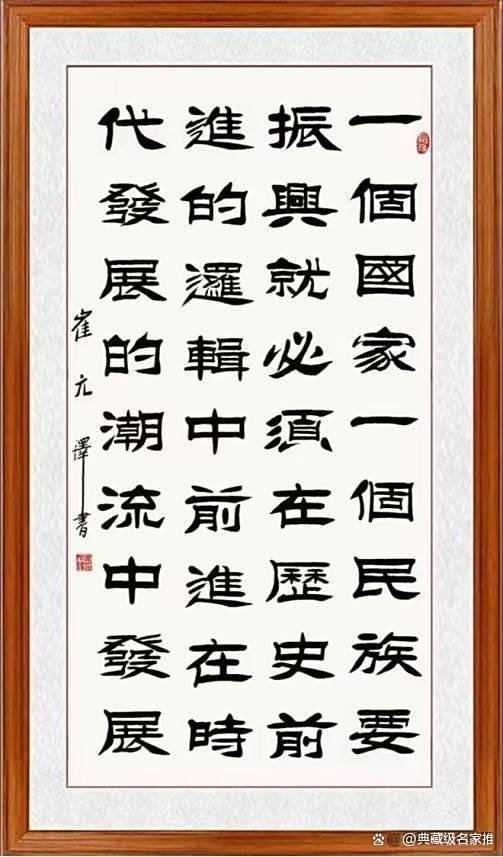 一個國家一個民族要
振興就必須在歷史前
進的邏輯中前進在時
代發展的潮流中發展
崔亢澤書
@典藏级名家推